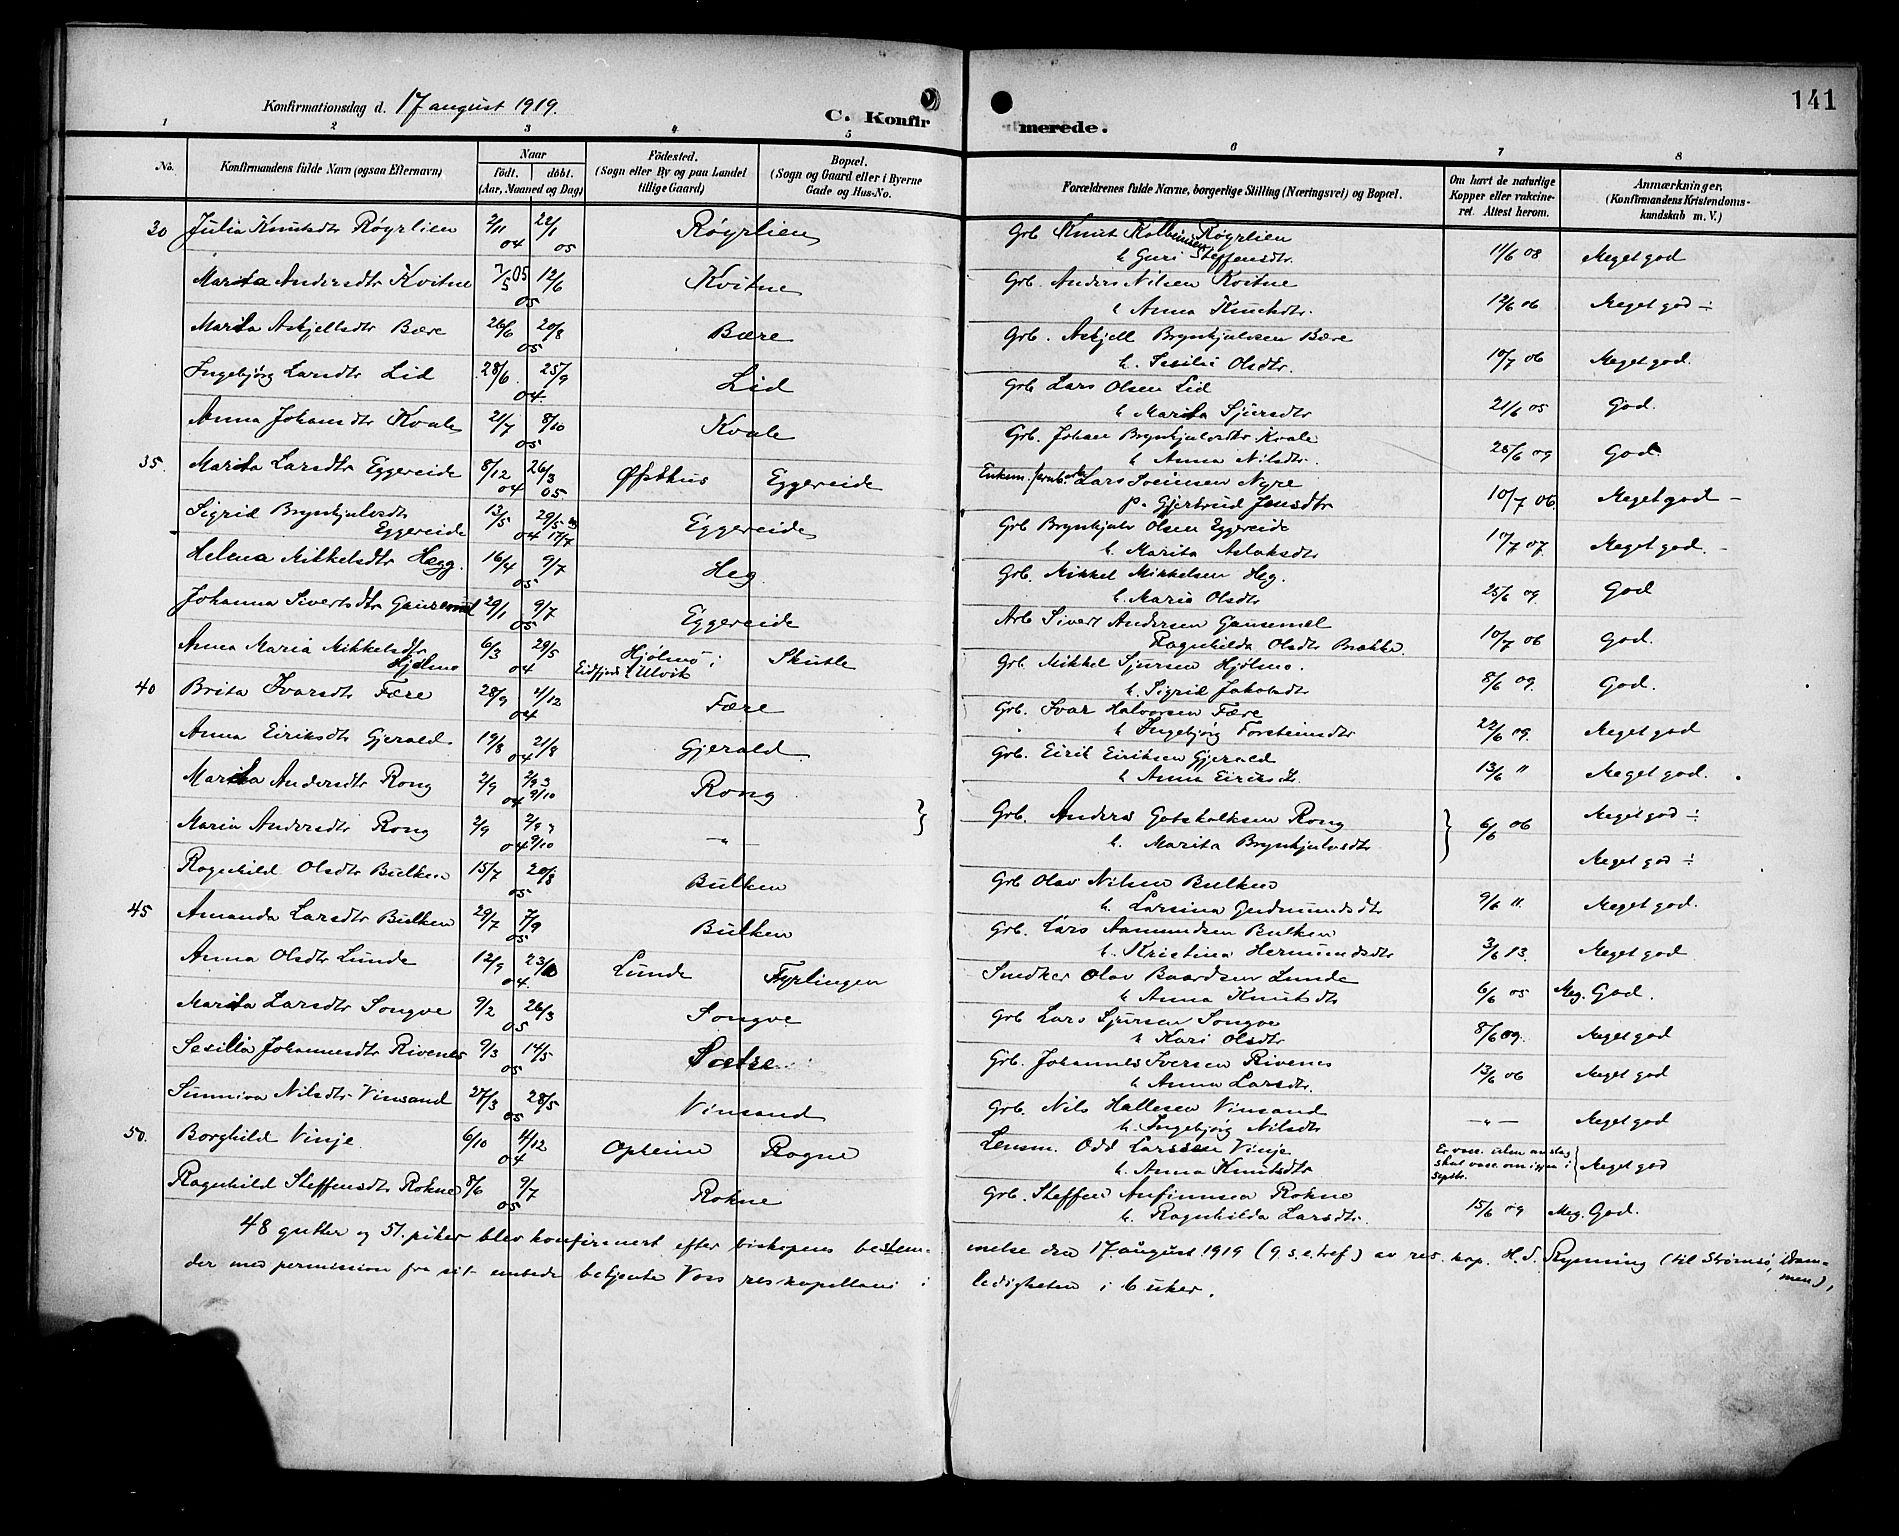 141
Konfirmationsdag d. 17 august 1919. C. Konfir merede.
1 2 3 4 5 6 7 8
No. Konfirmandens fulde Navn (ogsaa Efternavn) Naar født. døbt. (Aar, Maaned og Dag) Födested. (Sogn eller By og paa Landet tillige Gaard) Bopæl. (Sogn og Gaard eller i Byerne Gade og Hus-No. Forældrenes fulde Navne, borgerlige Stilling (Næringsvei) og Bopæl. Om havt de naturlige Kopper eller vakcineret. Attest herom. Anmærkninger. (Konfirmandens Kristendomskundskab m. V.)
30 Julia Knutsdtr Røyrlien 2/11 04 22/1 05 Røyrlien Grb Knut Kolbeinsen Røyrlien
h Guri Steffensdtr. 11/6 08 Meget god
Marita Andersdtr Kvitne 7/5 05 12/6 05 Kvitne Grb. Anders Nilsen Kvitne
h Anna Knutsdtr. 12/6 06 Meget god ÷
Marita Askjellsdtr Bære 26/6 20/8 05 Bære Grb. Askjell Brynhjulvsen Bære
h. Sesilie Olsdtr. 10/7 06 Meget god.
Ingebjørg Larsdtr Lid 28/6 25/9 04. Lid Grb Lars Olsen Lid
h Marita Sjursdtr 21/6 05 God.
Anna Johansdtr Kvale 21/7 8/10 05 Kvale Grb. Johan Brynhjulvsdtr Kvale
h Anna Nilsdtr. 28/6 09 God.
35. Marita Larsdtr Eggereide 8/12 04 26/3 05 Øfsthus Eggereide Enkem. Lars Sveinsen Nyre
p. Gjertrud Jensdtr 10/7 06. Meget god –
Sigrid Brynhjulvsdtr
Eggereide 13/5 29/5 04 17/7 Eggereide Grb Brynhjulv Olsen Eggereide
h. Marita Aslaksdtr 10/7 07. Meget god. –
Helena Mikkelsdtr Hegg. 16/4 9/7 05 Heg. Grb. Mikkel Mikkelsen Heg.
h. Maria Olsdtr 25/6 09. God
Johanna Sivertsdtr Gausemel 29/1 9/7 05 Eggereide Arb Sivert Andersen Gausemel
Ragnhilda Olsdtr Brakke. 10/7 06 God.
Anna Maria Mikkelsdtr
Hjølmo 6/3 29/5 04 Hjølmo i
Eidfjord i Ulvik Skutle Grb. Mikkel Sjursen Hjølmo.
h. Sigrid Jakobsdtr 8/6 09. God.
40 Brita Ivarsdtr Fære 28/9 4/12 04 Fære Grb. Ivar Halvorsen Fære
h Ingebjørg Torsteinsdtr 22/6 09. Meget god
Anna Eiriksdtr Gjerald 19/8 21/8 04 Gjerald Grb. Eirik Eiriksen Gjerald
h Anna Eiriksdtr. 13/6 11 Meget god.
Marita Andersdtr Rong 2/9 2/9 04 9/10 Rong Grb. Anders Gotskalksen Rong
h. Marita Brynhjulvsdtr 6/6 06 Meget god ÷
Maria Andersdtr Rong 2/9 2/9 04 9/10 – „ – Meget god ÷
Ragnhild Olsdtr Bulken 15/7 20/8 05 Bulken Grb Olav Nilsen Bulken
h. Larsina Gudmundsdtr 9/6 11. Meget god.
45 Amanda Larsdtr Bulken 29/7 7/9 05 Bulken Grb. Lars Aamundsen Bulken
h. Kristina Hermundsdtr 3/6 13. Meget god
Anna Olsdtr Lunde 12/9 04 Lunde Fyrlingen Snedker Olav Baardsen Lunde
h Anna Knutsdtr 6/6 05 Meg. God.
Marita Larsdtr Songve 9/2 26/3 05 Songve Grb Lars Sjursen Songve
h Kari Olsdtr 8/6 09. Meget god
Sesilia Johannesdtr Rivenes 9/3 14/5 05 Sætre Grb. Johannes Iversen Rivenes
h Anna Larsdtr. 13/6 06 Meget god
Sunniva Nilsdtr Vinsand 27/3 28/5 05 Vinsand Grb. Nils Hallesen Vinsand
h. Ingebjørg Nilsdtr – „ – Meget god
50. Borghild Vinje 6/10 4/12 04 Opheim Rogne Lensm. Odd Larssen Vinje
h. Anna Knutsdtr Er vacc. uten anslag skal vacc. om igjen i Septb. Meget god
Ragnhild Steffensdtr Rokne 8/6 9/7 05 Rokne Grb. Steffen Anfinnsen Rokne
h. Ragnhilda Larsdtr. 15/6 09 Meg. God.
48 gutter og 51. piker blev konfirmert efter biskopens bestem- melse den 17 august 1919 (9 s. e. tref) av res. kap. H. S. Rynning (til Strømsø, Dram-
men),
der med permission fra sit embede betjente Voss reskapellani i ledigheten i 6 uker.